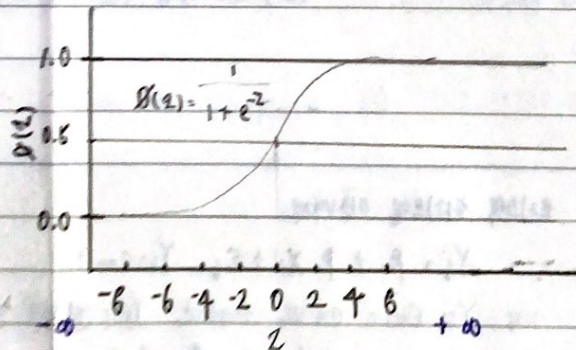 1.0
Ø(z) = 1 / 1 + e^-z
Ø(z)
0.5
0.0
-8 -6 -4 -2 0 2 4 6
-∞ z +∞